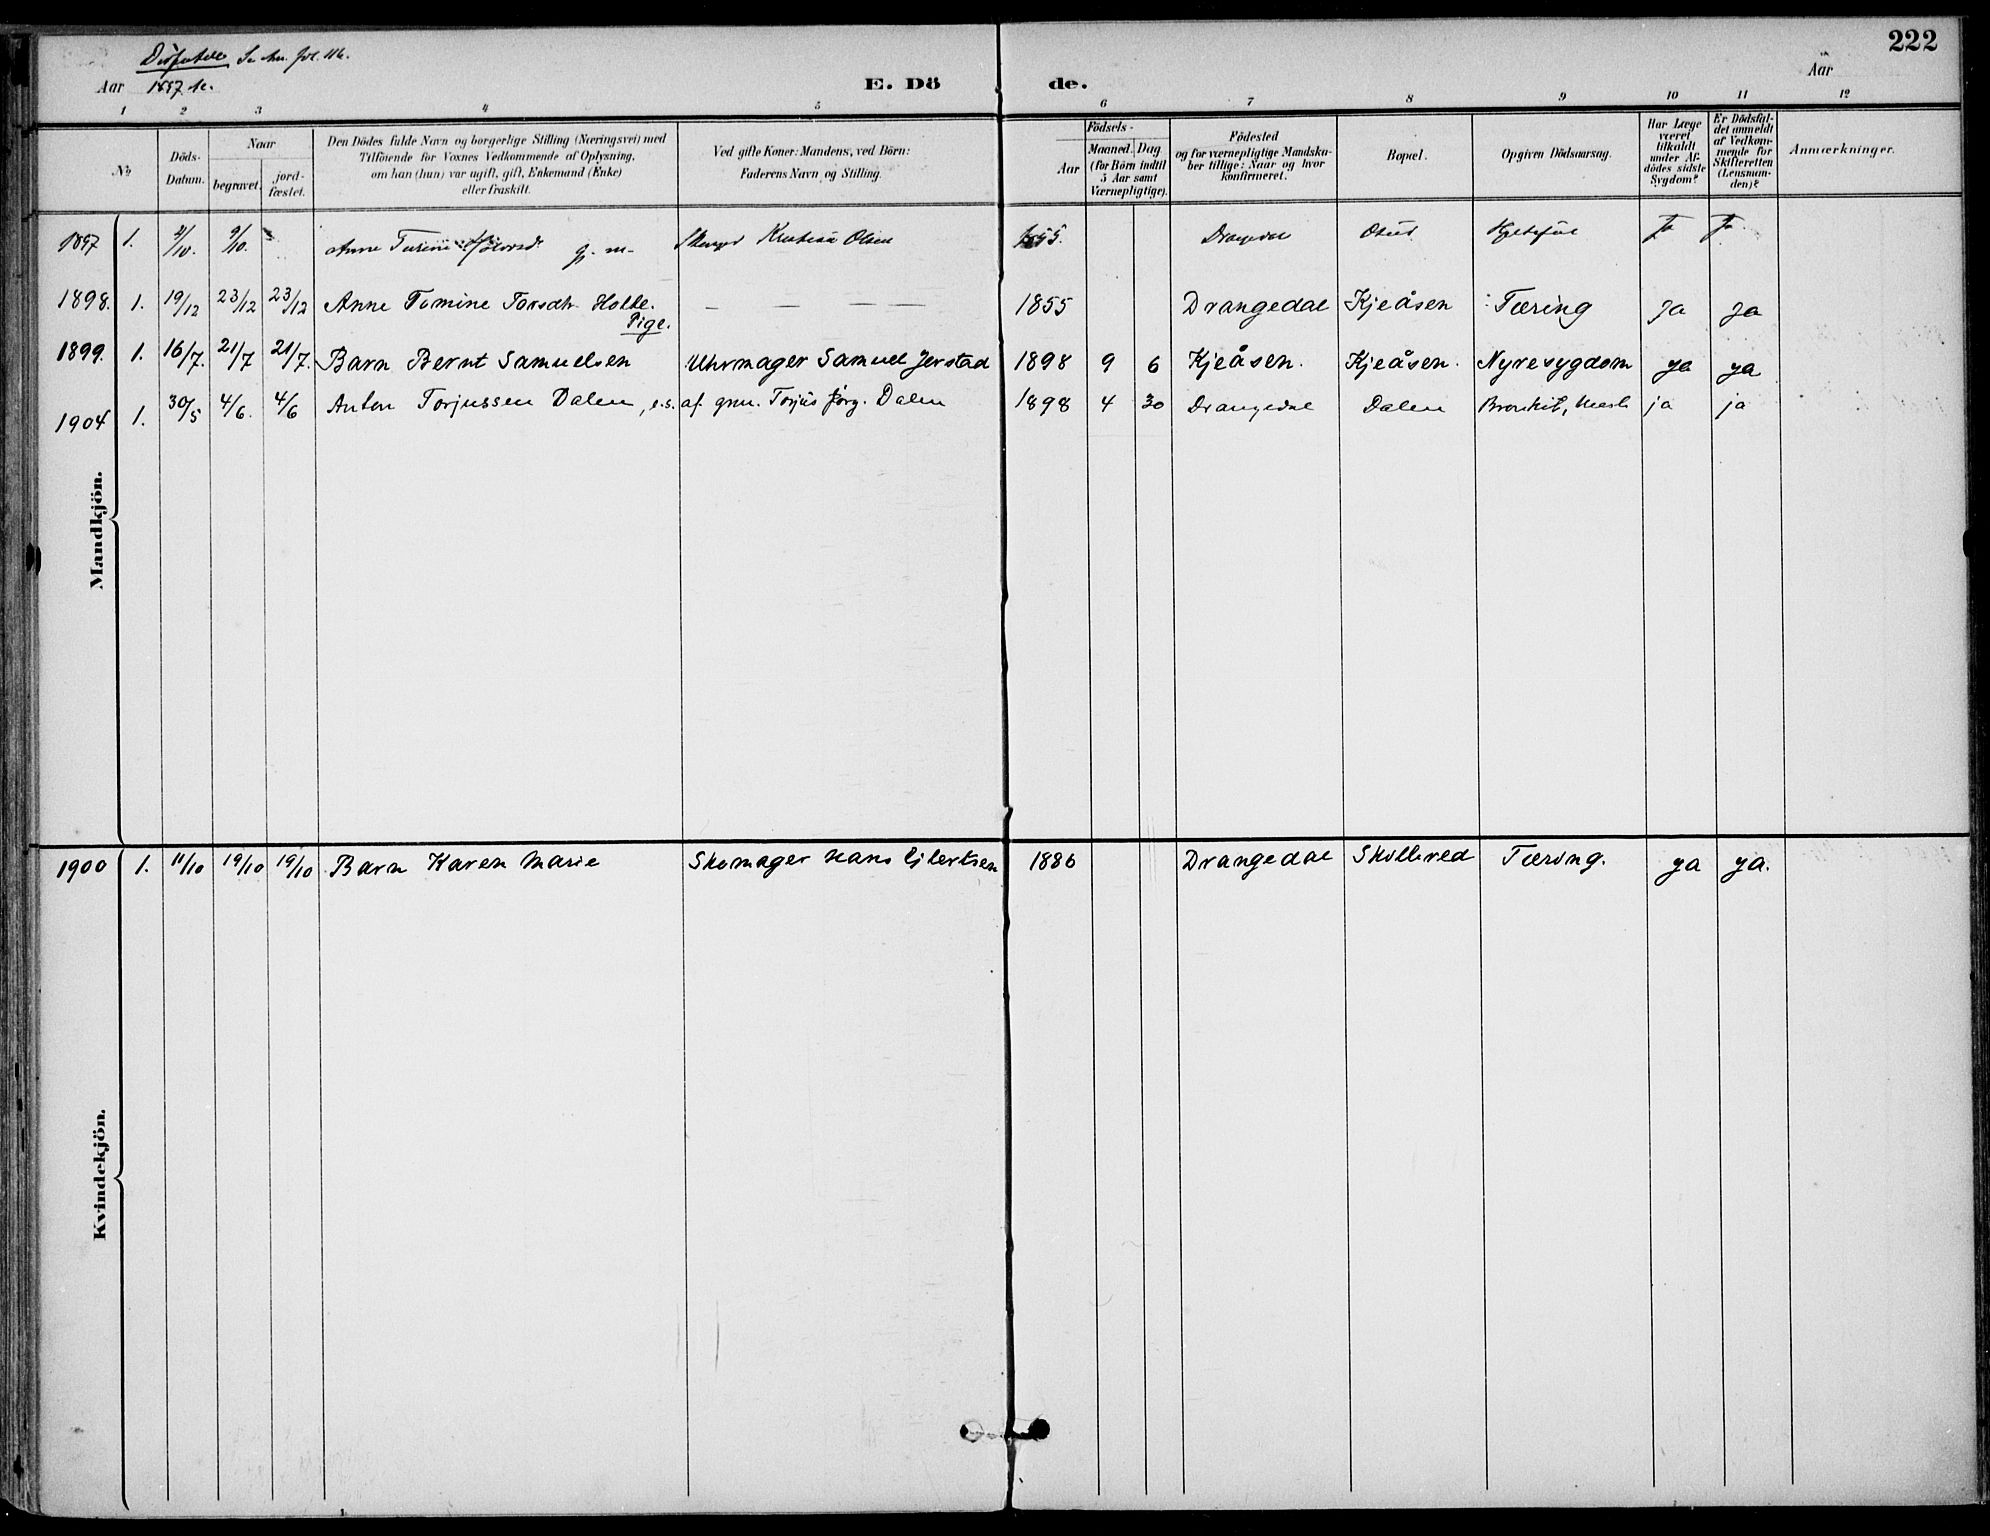 222
Se
Aar 1897
E. Döde.
Aar
1 2 3 4 5 6 7 8 9 10 11 12
No
Döds-Datum.
Naar
begravet.
jord-fæstet.
Den Dödes fulde Navn og borgerlige Stilling (Næringsvei) med
Tilföiende for Voxnes Vedkommende af Oplysning,
om han (hun) var ugift, gift, Enkemand (Enke)
eller fraskilt.
Ved gifte Koner: Mandens, ved Börn:
Faderens Navn og Stilling.
Födsels-
Aar
Maaned. Dag
(for Börn indtil
5 Aar samt
Værnepligtige).
Födested
og for værnepligtige Mandska-
ber tillige: Naar og hvor
konfirmeret.
Bopæl.
Opgiven Dödsaarsag.
Har Læge
været
tilkaldt
under Af-
dödes sidste
Sygdom?
Er Dödsfal-
det anmeldt
af Vedkom-
mende for
Skifteretten
(Lensman-
den)?
Anmærkninger.
1897 1. 9/10. Anne g. m. Olsen 1855. Drangedal Ja Ja
1898. 1. 19/12 23/12 23/12 Anne Tomine Torsdtr Holte. — — — — 1855 Drangedal Kjeåsen Tæring Ja Ja
Pige.
1899. 1. 16/7. 21/7 21/7. Barn Bernt Samuelsen Uhrmager Samuel Jerstad 1898 9 6 Kjeåsen. Kjeåsen. Nyresygdom ya ya
1904 1. 30/5 4/6. 4/6 Anton Torjussen Dalen, e.s. af gm. Torjus Jörg. Dalen 1898 4 30 Drangedal Dalen Bronkit, ja ja
Mandkjön.
1900 1. 11/10 19/10 19/10 Barn Karen Marie Skomager Hans Ejlertsen 1886 Drangedal Tæring. ya ya.
Kvindekjön.